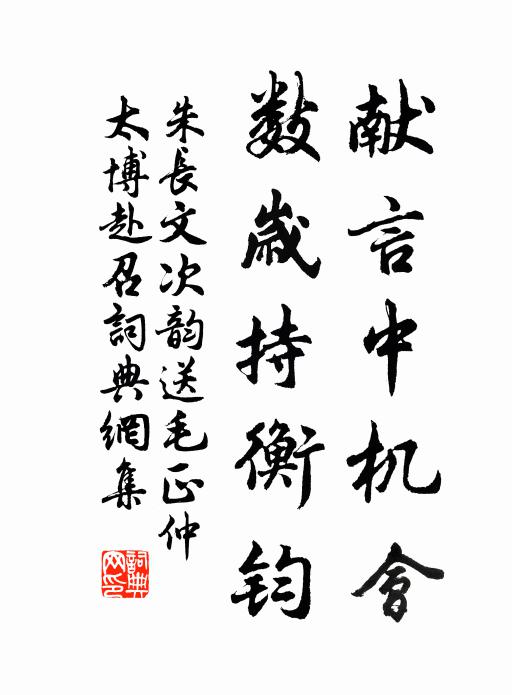 献言中机會
数歲持衡鈞
朱長文次韵送毛正仲
太博赴召詞典網集
詞典网印